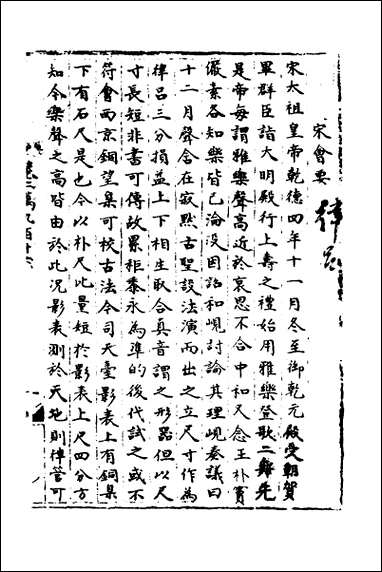 宋會要
律呂
宋太祖皇帝乾德四年十一月冬至御乾元殿受朝賀
畢群臣詣大明殿行上壽之禮始用雅樂登歌二舞先
是帝每謂雅樂聲高近於哀思不合中和又念王朴竇
儼素各知樂皆已淪沒因詔和峴討論其理峴奏議曰
十二月聲含在寂默古聖設法演而出之立尺寸作為
律呂三分損益上下相生取合真音謂之形器但以尺
寸長短非書可傳故累秬黍永為準的後代試之或不
符會西京銅望臬可校古法今司天臺影表上有銅臬
下有石尺是也今以朴尺比量短於影表上尺四分方
知今樂聲之高皆由於此況影表測於天地則律管可
卷二萬九百廿六